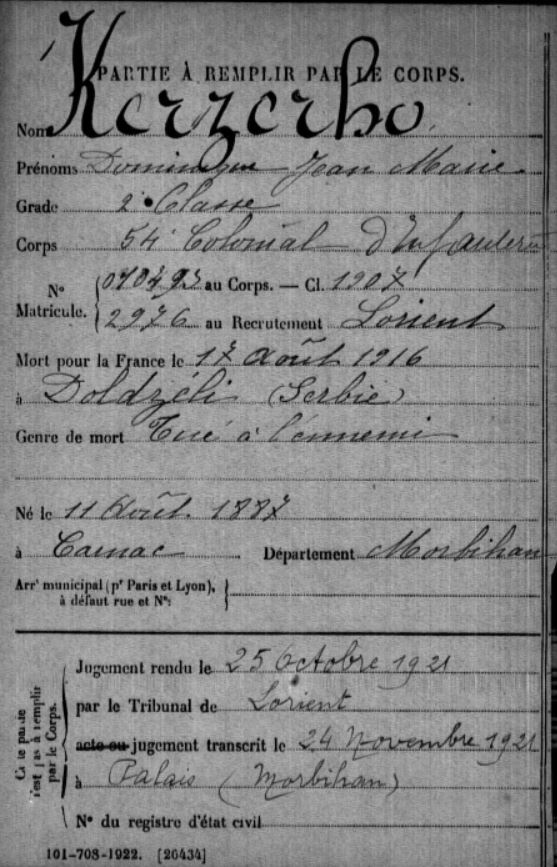 PARTIE À REMPLIR PAR LE CORPS.
Nom Kerzerho
Prénoms Dominique Jean Marie
Grade 2e Classe
Corps 54e Colonial d'Infanterie
N° Matricule. au Corps. — Cl. 1907
2976 au Recrutement Lorient
Mort pour la France le 17 août 1916
à Doldzéli (Serbie)
Genre de mort Tué à l'ennemi
Né le 11 Août 1887
à Carnac Département Morbihan
Arrt municipal (pr Paris et Lyon),
à défaut rue et N°:
Jugement rendu le 25 Octobre 1921
par le Tribunal de Lorient
acte ou jugement transcrit le 24 Novembre 1921
à Palais (Morbihan)
N° du registre d'état civil
Cette partie
n'est pas à remplir
par le Corps.
101-708-1922. [26434]